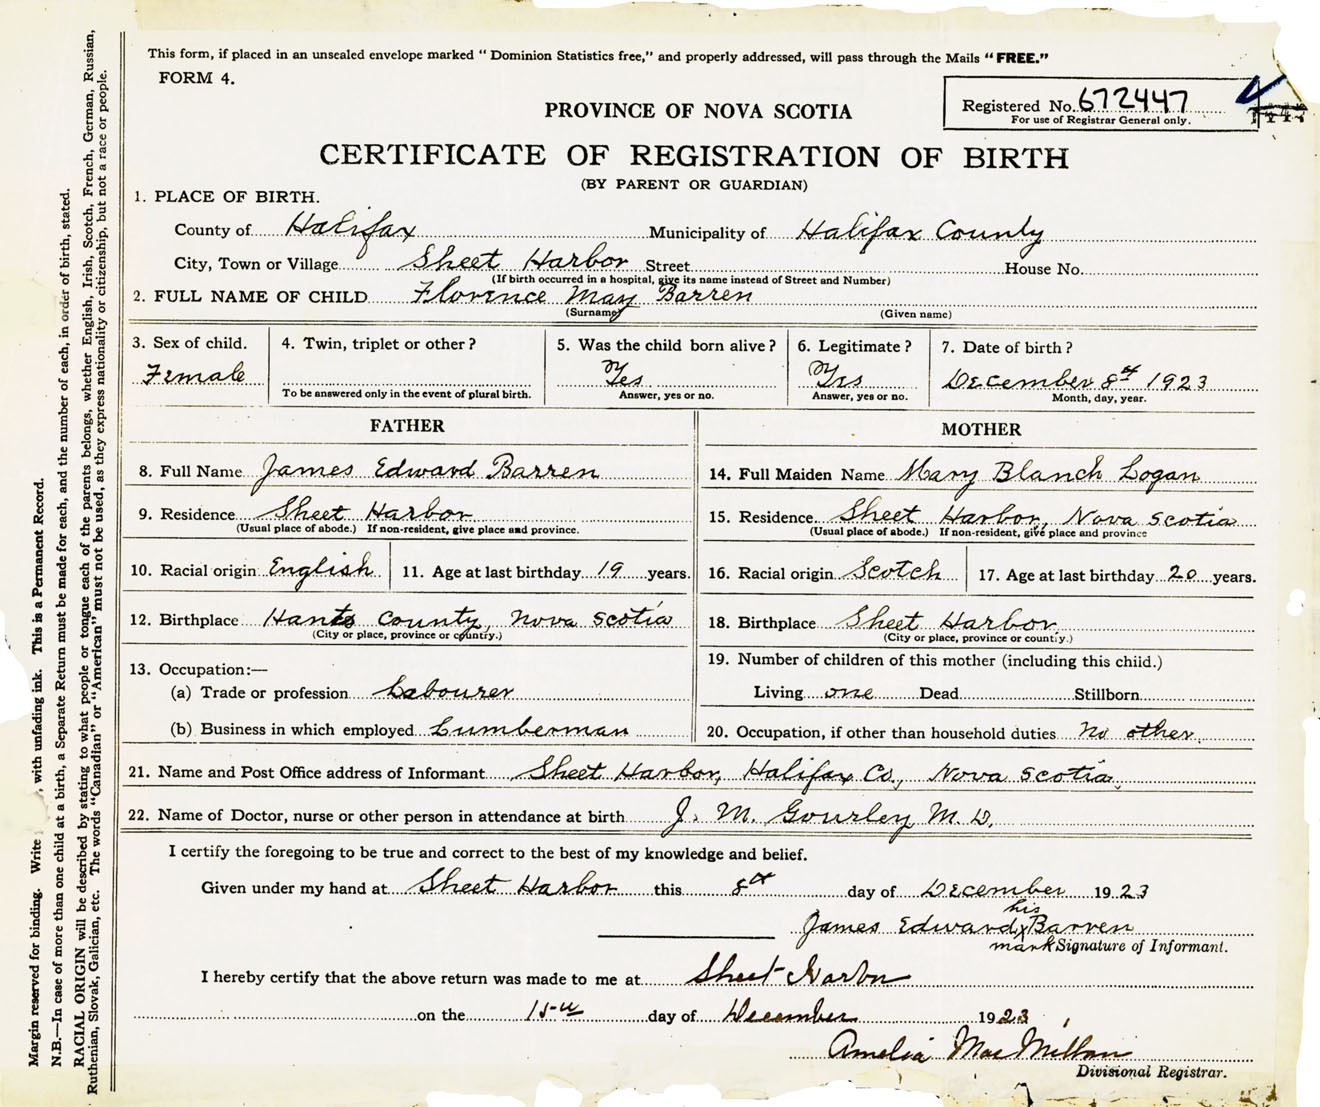 This form, if placed in an unsealed envelope marked “ Dominion Statistics free,” and properly addressed, will pass through the Mails “FREE.”
FORM 4.
Registered No. 672447
For use of Registrar General only.
PROVINCE OF NOVA SCOTIA
CERTIFICATE OF REGISTRATION OF BIRTH
(BY PARENT OR GUARDIAN)
1. PLACE OF BIRTH.
County of Halifax Municipality of Halifax County
City, Town or Village Sheet Harbor Street House No.
(If birth occurred in a hospital, give its name instead of Street and Number)
2. FULL NAME OF CHILD Florence May Barren
(Surname) (Given name)
3. Sex of child. 4. Twin, triplet or other? 5. Was the child born alive? 6. Legitimate? 7. Date of birth?
Female Yes Yes December 8th 1923
To be answered only in the event of plural birth. Answer, yes or no. Answer, yes or no. Month, day, year.
FATHER MOTHER
8. Full Name James Edward Barren 14. Full Maiden Name Mary Blanch Logan
9. Residence Sheet Harbor 15. Residence Sheet Harbor, Nova Scotia
(Usual place of abode.) If non-resident, give place and province. (Usual place of abode.) If non-resident, give place and province
10. Racial origin English 11. Age at last birthday 19 years. 16. Racial origin Scotch 17. Age at last birthday 20 years.
12. Birthplace Hants County, Nova Scotia 18. Birthplace Sheet Harbor
(City or place, province or country.) (City or place, province or country.)
13. Occupation:— 19. Number of children of this mother (including this child.)
(a) Trade or profession Labourer Living one Dead Stillborn
(b) Business in which employed Lumberman 20. Occupation, if other than household duties No other.
21. Name and Post Office address of Informant Sheet Harbor, Halifax Co., Nova Scotia
22. Name of Doctor, nurse or other person in attendance at birth J. M. Gourley M. D.
I certify the foregoing to be true and correct to the best of my knowledge and belief.
Given under my hand at Sheet Harbor this 8th day of December 1923
his
James Edward x Barren
mark Signature of Informant.
I hereby certify that the above return was made to me at Sheet Harbor
on the 15th day of December 1923
Amelia MacMillan
Divisional Registrar.
Margin reserved for binding. Write , with unfading ink. This is a Permanent Record.
N.B.—In case of more than one child at a birth, a Separate Return must be made for each, and the number of each, in order of birth, stated.
RACIAL ORIGIN will be described by stating to what people or tongue each of the parents belongs, whether English, Irish, Scotch, French, German, Russian,
Ruthenian, Slovak, Galician, etc. The words “Canadian” or “American” must not be used, as they express nationality or citizenship, but not a race or people.